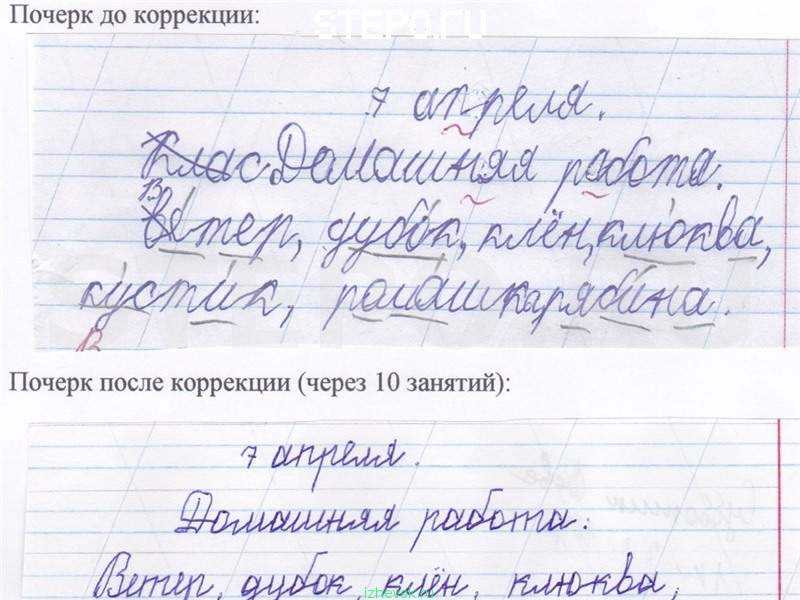 Почерк до коррекции:
STEPO.ru
7 апреля.
Клас Домашняя работа.
Ветер, дубок, клён, клюква,
кустик, ромашка, рябина.
В
Почерк после коррекции (через 10 занятий):
7 апреля.
Домашняя работа.
Ветер, дубок, клён, клюква,